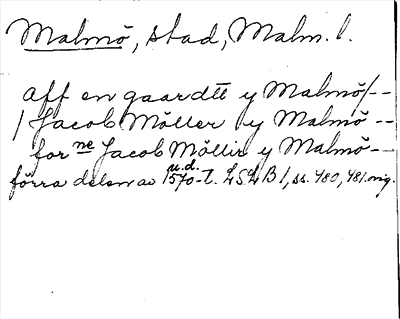 Malmö, stad, Malm. l.
aff en gaardtt y Malmö/--
/ Jacob Möller y Malmö --
for ne Jacob Möllir y Malmö --
u.d.
förra delen av 1570-t. LSLB 1, ss. 480, 481. orig.